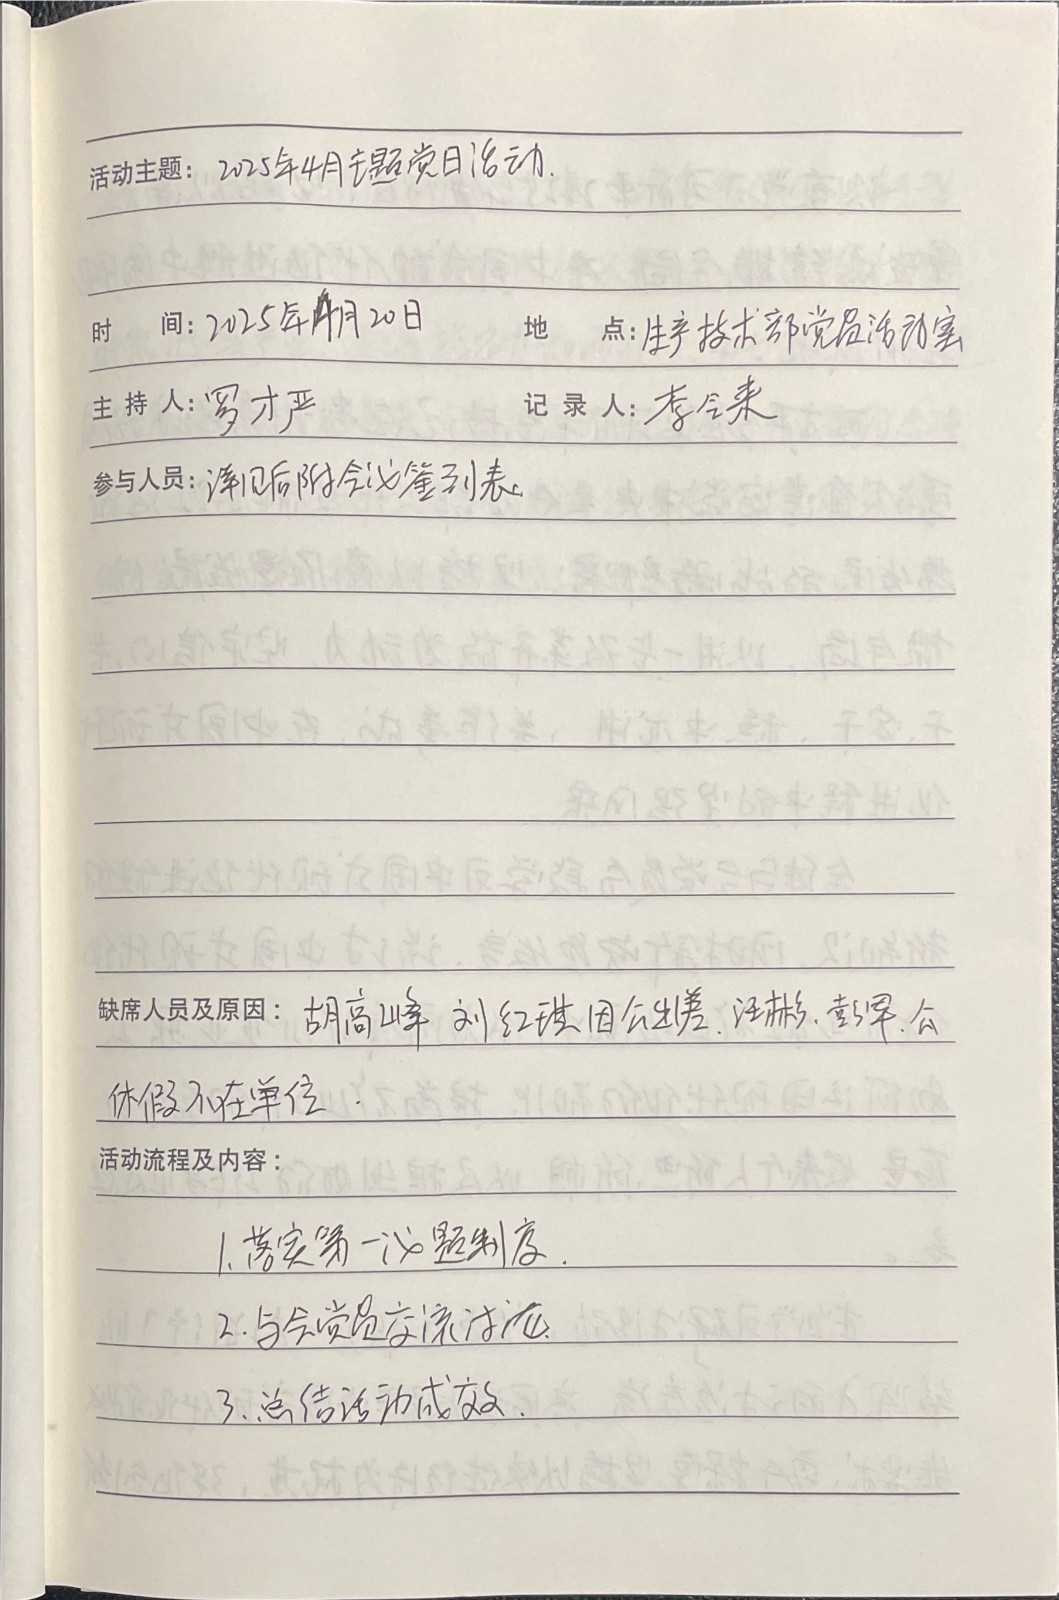 活动主题：2025年4月主题党日活动.
时 间：2025年4月20日 地 点：生产技术部党员活动室
主 持 人：罗才严 记 录 人：李令来
参与人员：详见后附会议签到表。
缺席人员及原因：胡高峰 刘红琪因公出差、汪彬、彭军、公
休假不在单位.
活动流程及内容：
1. 落实第一议题制度.
2. 与会党员交流讨论.
3. 总结活动成效.